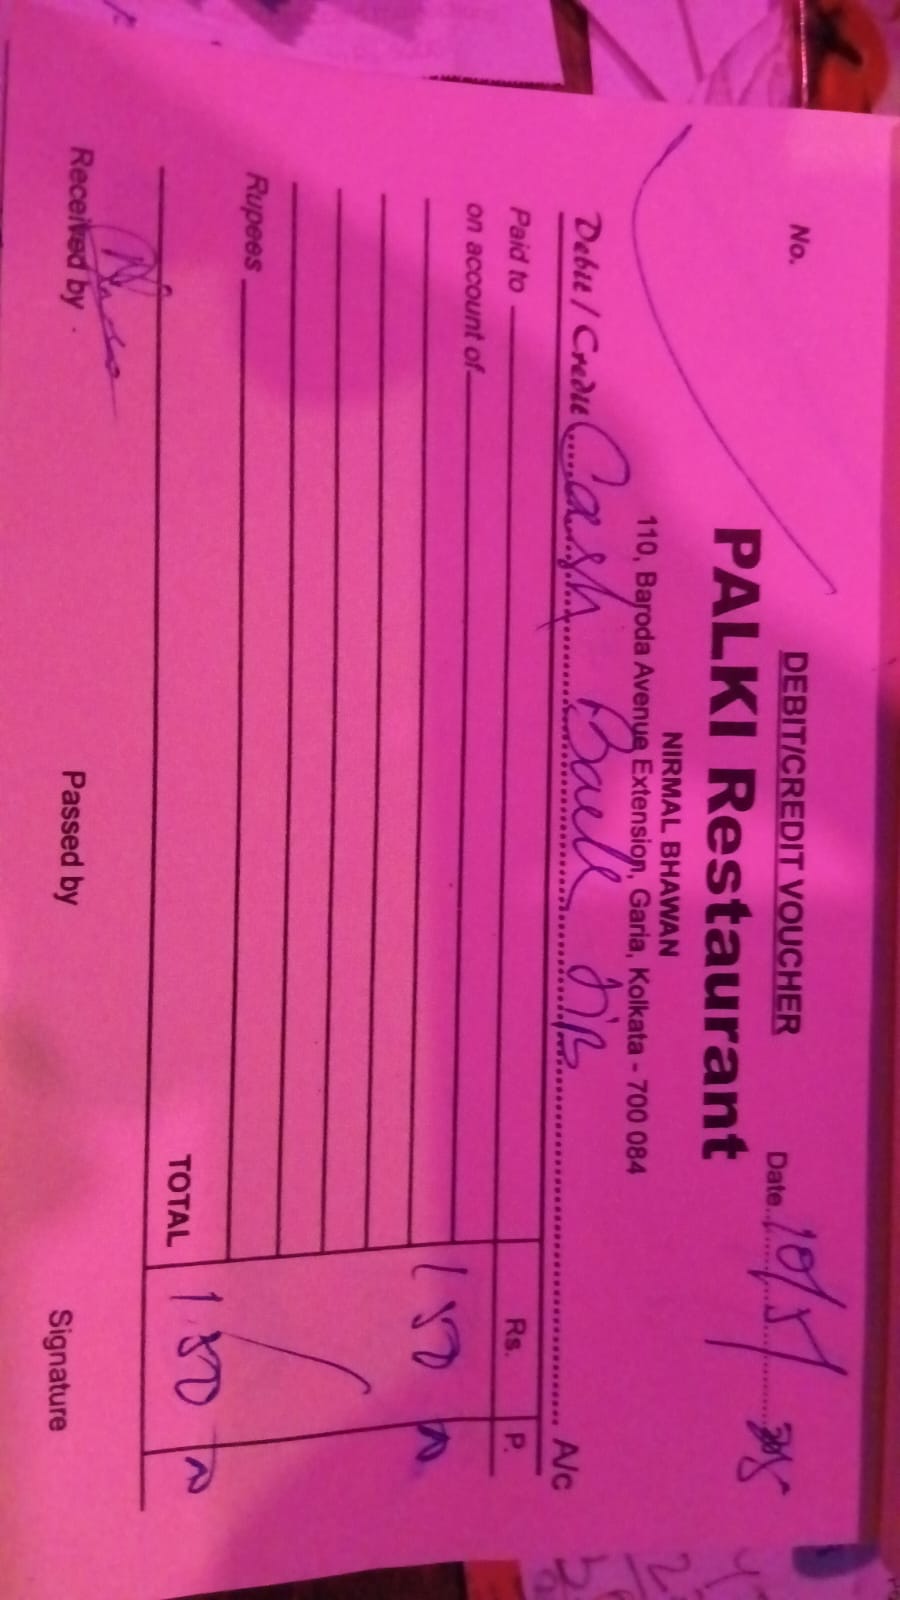 DEBIT/CREDIT VOUCHER
No.
Date 10/5/
PALKI Restaurant
NIRMAL BHAWAN
110, Baroda Avenue Extension, Garia, Kolkata - 700 084
Debit / Credit Cash A/c
Paid to
Rs. P.
on account of
150
Rupees
TOTAL 150
Received by Passed by Signature